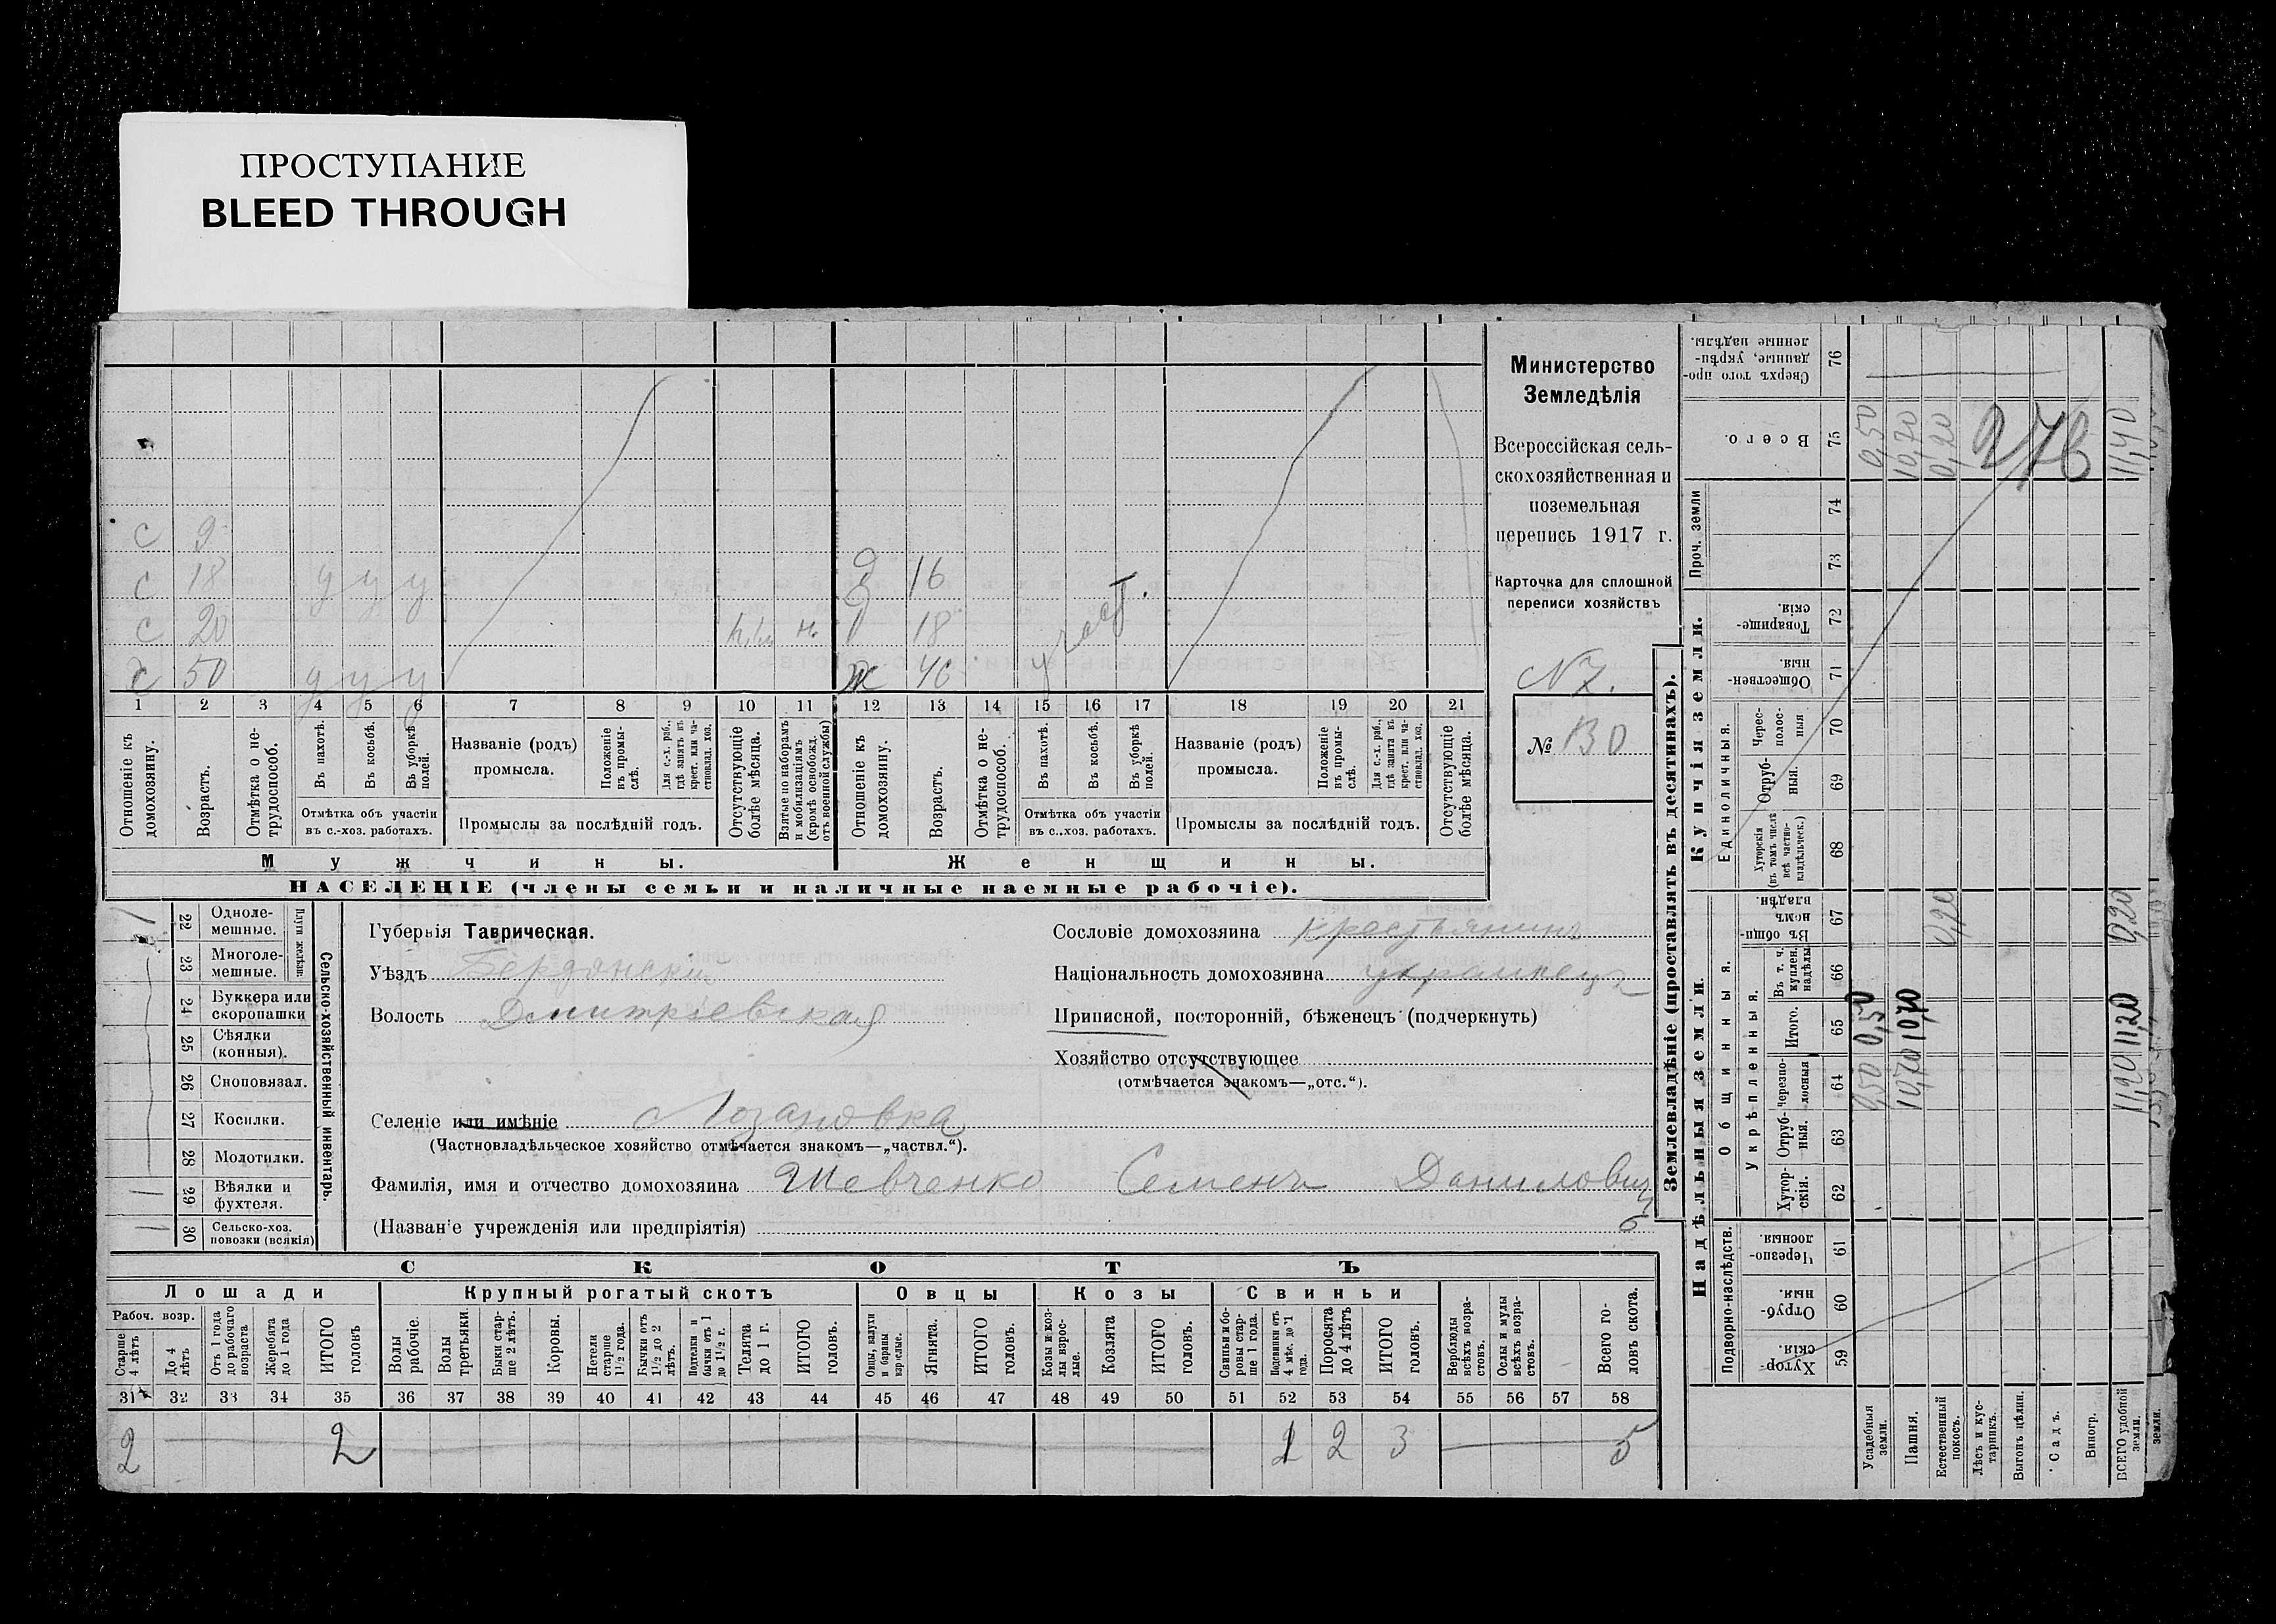 ПРОСТУПАНИЕ
BLEED THROUGH
Министерство
Земледѣлія
Всероссійская сель-
скохозяйственная и
поземельная
перепись 1917 г.
Карточка для сплошной
переписи хозяйствъ
N7.
№ 130
с 9
с 18 у у у
д 16
с 20
д 18
50 у у у
ж 46
1 2 3 4 5 6 7 8 9 10 11 12 13 14 15 16 17 18 19 20 21
Отношеніе къ домохозяину.
Возрастъ.
Отмѣтка о не-трудоспособ.
Въ пахотѣ.
Въ косьбѣ.
Въ уборкѣ полей.
Отмѣтка объ участіи
въ с.-хоз. работахъ.
Названіе (родъ)
промысла.
Положеніе въ промы-слѣ.
Для с.-х. раб., гдѣ занятъ въ крест. или ча-стновлад. хоз.
Промыслы за послѣдній годъ.
Отсутствующіе болѣе мѣсяца.
Взятые по наборамъ и мобилизаціямъ (кромѣ освобожд. отъ военной службы)
Отношеніе къ домохозяину.
Возрастъ.
Отмѣтка о не-трудоспособ.
Въ пахотѣ.
Въ косьбѣ.
Въ уборкѣ полей.
Отмѣтка объ участіи
въ с..хоз. работахъ.
Названіе (родъ)
промысла.
Положеніе въ промы-слѣ.
Для с.-х. раб., гдѣ занята въ крест. или ча-стновлад. хоз.
Промыслы за послѣдній годъ.
Отсутствующіе болѣе мѣсяца.
Мужчины.
Женщины.
НАСЕЛЕНІЕ (члены семьи и наличные наемные рабочіе).
Сельско-хозяйственный инвентарь.
Плуги желѣзн.
22 Одноле-мешные.
23 Многоле-мешные.
24 Буккера или скоропашки
25 Сѣялки (конныя).
26 Сноповязал.
27 Косилки.
28 Молотилки.
29 Вѣялки и фухтеля.
30 Сельско-хоз. повозки (всякія)
Губернія Таврическая.
Уѣздъ Бердянскій
Волость Дмитріевская
Сословіе домохозяина крестьянинъ
Національность домохозяина украинецъ
Приписной, посторонній, бѣженецъ (подчеркнуть)
Хозяйство отсутствующее
(отмѣчается знакомъ—„отс.“).
Селеніе или имѣніе с Лозановка
(Частновладѣльческое хозяйство отмѣчается знакомъ—„частвл.“).
Фамилія, имя и отчество домохозяина Шевченко Семенъ Данилович
(Названіе учрежденія или предпріятія)
СКОТЪ
Лошади
Крупный рогатый скотъ
Овцы
Козы
Свиньи
Рабоч. возр.
Старше 4 лѣтъ
До 4 лѣтъ
Отъ 1 года до рабочаго возраста
Жеребята до 1 года
ИТОГО головъ
Волы рабочіе.
Волы третьяки.
Быки стар-ше 2 лѣтъ.
Коровы.
Нетели старше 1½ года.
Бычки отъ 1½ до 2 лѣтъ.
Подтелки и бычки отъ 1 до 1½ г.
Телята до 1 г.
ИТОГО головъ.
Овцы, валухи и бараны взрослые.
Ягнята.
ИТОГО головъ.
Козы и коз-лы взрос-лые.
Козлята
ИТОГО головъ.
Свиньи и бо-ровы стар-ше 1 года.
Подсвинки отъ 4 мѣс. до 1 года.
Поросята до 4 лѣтъ
ИТОГО головъ.
Верблюды всѣхъ возра-стовъ.
Ослы и мулы всѣхъ возра-стовъ.
Всего го-ловъ скота.
31 32 33 34 35 36 37 38 39 40 41 42 43 44 45 46 47 48 49 50 51 52 53 54 55 56 57 58
2 2 1 2 3 5
Землевладѣніе (проставлять въ десятинахъ).
Купчія земли.
Надѣльныя земли.
Сверхъ того про-данные, укрѣп-ленные надѣлы. 76
Всего. 75
Проч. земли
74
73
Товарище-скія. 72
Обществен-ныя. 71
Единоличныя.
Черес-полос-ныя 70
Отруб-ныя. 69
Хуторскія (въ томъ числѣ всѣ частно-владѣльческ.) 68
Общинныя.
Въ общин-номъ владѣн. 67
Укрѣпленныя.
Въ т. ч. куплен. надѣлы 66
Итого. 65
Черезпо-лосныя 64
Отруб-ныя. 63
Хутор-скія. 62
Подворно-наслѣдств.
Черезпо-лосныя. 61
Отруб-ныя. 60
Хутор-скія. 59
Усадебныя земли. 0,50 0,50 0,50
Пашня. 10,70 10,70 10,70
Естественный покосъ. 0,20 0,20
Лѣсъ и кус-тарникъ.
Выгонъ цѣлин.
Садъ.
Виногр.
ВСЕГО удобной земли. 11,20 11,20 0,20 11,40
276
земли.